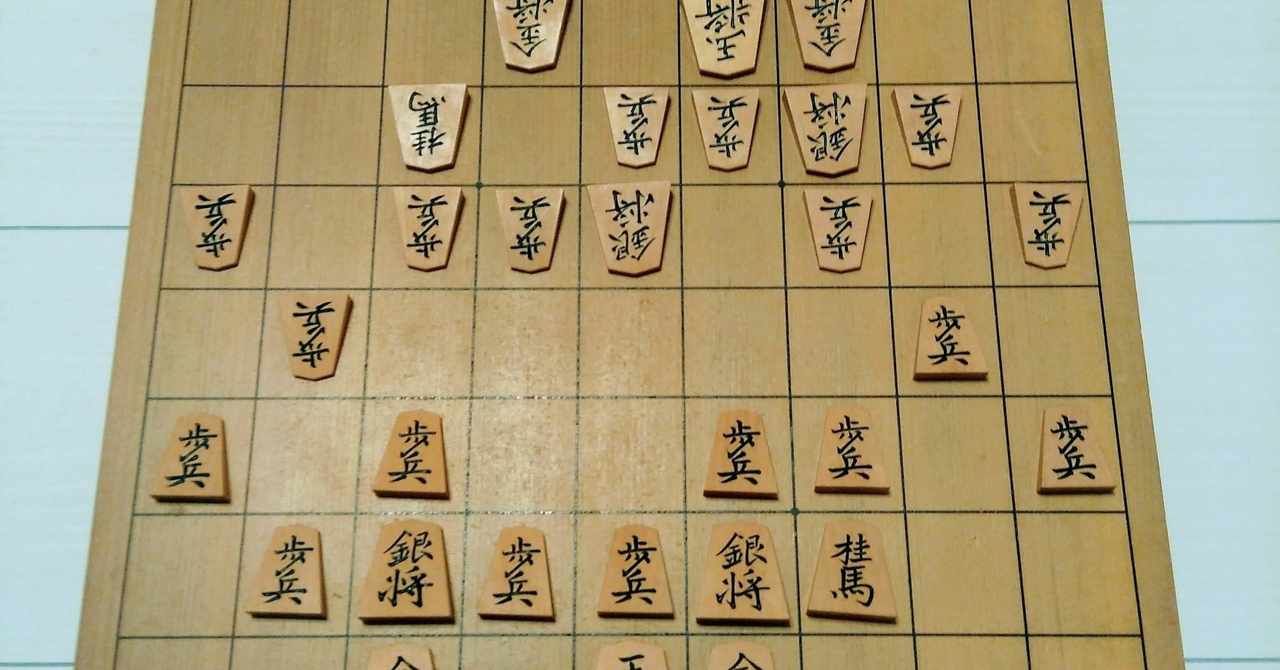 金将
玉将
金将
桂馬
歩兵
歩兵
銀将
歩兵
歩兵
歩兵
歩兵
銀将
歩兵
歩兵
歩兵
歩兵
歩兵
歩兵
歩兵
歩兵
歩兵
歩兵
銀将
歩兵
歩兵
銀将
桂馬